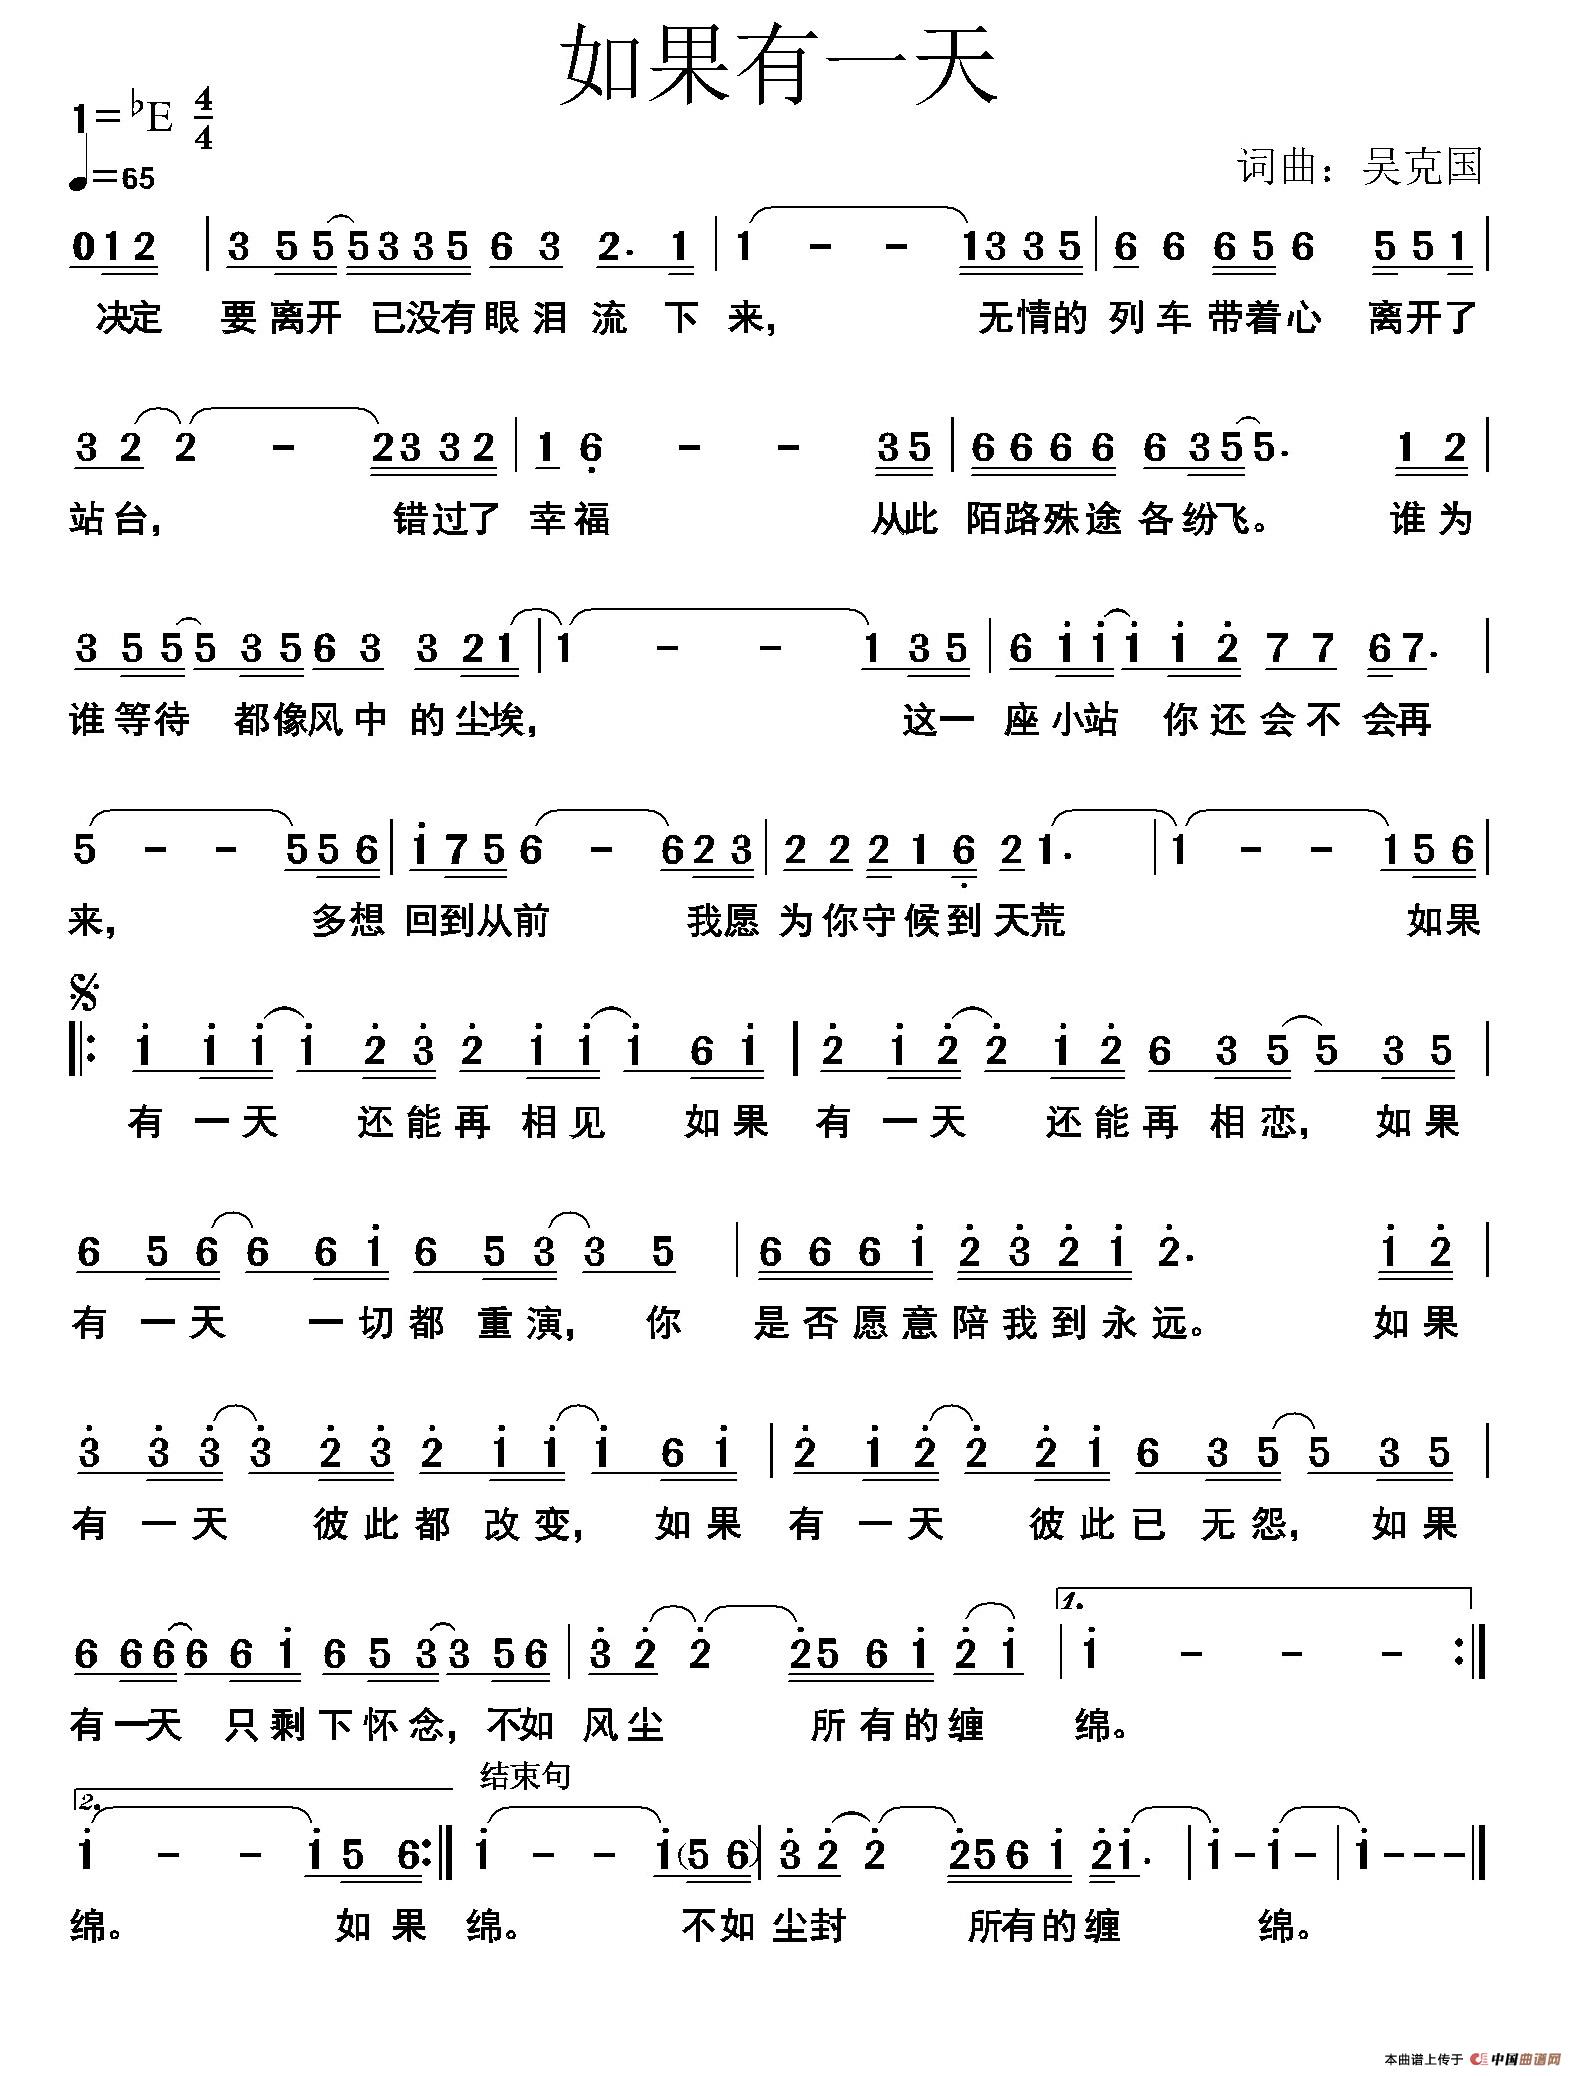 如果有一天
1=♭E 4/4
♩=65
词曲：吴克国
0 1 2 | 3 5 5 5 3 3 5 6 3 2. 1 | 1 - - 1 3 3 5 | 6 6 6 5 6 5 5 1 |
决定 要离开 已没有眼泪流下来， 无情的列车带着心 离开了
3 2 2 - 2 3 3 2 | 1 6 - - 3 5 | 6 6 6 6 6 3 5 5. 1 2 |
站台， 错过了幸福 从此陌路殊途各纷飞。 谁为
3 5 5 5 3 5 6 3 3 2 1 | 1 - - 1 3 5 | 6 1 1 1 1 2 7 7 6 7. |
谁等待 都像风中的尘埃， 这一座小站 你还会不会再
5 - - 5 5 6 | 1 7 5 6 - 6 2 3 | 2 2 2 1 6 2 1. | 1 - - 1 5 6 |
来， 多想回到从前 我愿为你守候到天荒 如果
𝄋
|: 1 1 1 1 2 3 2 1 1 1 6 1 | 2 1 2 2 1 2 6 3 5 5 3 5 |
有一天 还能再相见 如果有一天 还能再相恋， 如果
6 5 6 6 6 1 6 5 3 3 5 | 6 6 6 1 2 3 2 1 2. 1 2 |
有一天 一切都重演， 你是否愿意陪我到永远。 如果
3 3 3 3 2 3 2 1 1 1 6 1 | 2 1 2 2 2 1 6 3 5 5 3 5 |
有一天 彼此都改变， 如果有一天 彼此已无怨， 如果
1.
6 6 6 6 6 1 6 5 3 3 5 6 | 3 2 2 2 5 6 1 2 1 | 1 - - - :|
有一天 只剩下怀念， 不如风尘 所有的缠绵。
2. 结束句
1 - - 1 5 6 :| 1 - - 1 (5 6) | 3 2 2 2 5 6 1 2 1. | 1 - 1 - | 1 - - - |
绵。 如果绵。 不如尘封 所有的缠 绵。
本曲谱上传于 中国曲谱网